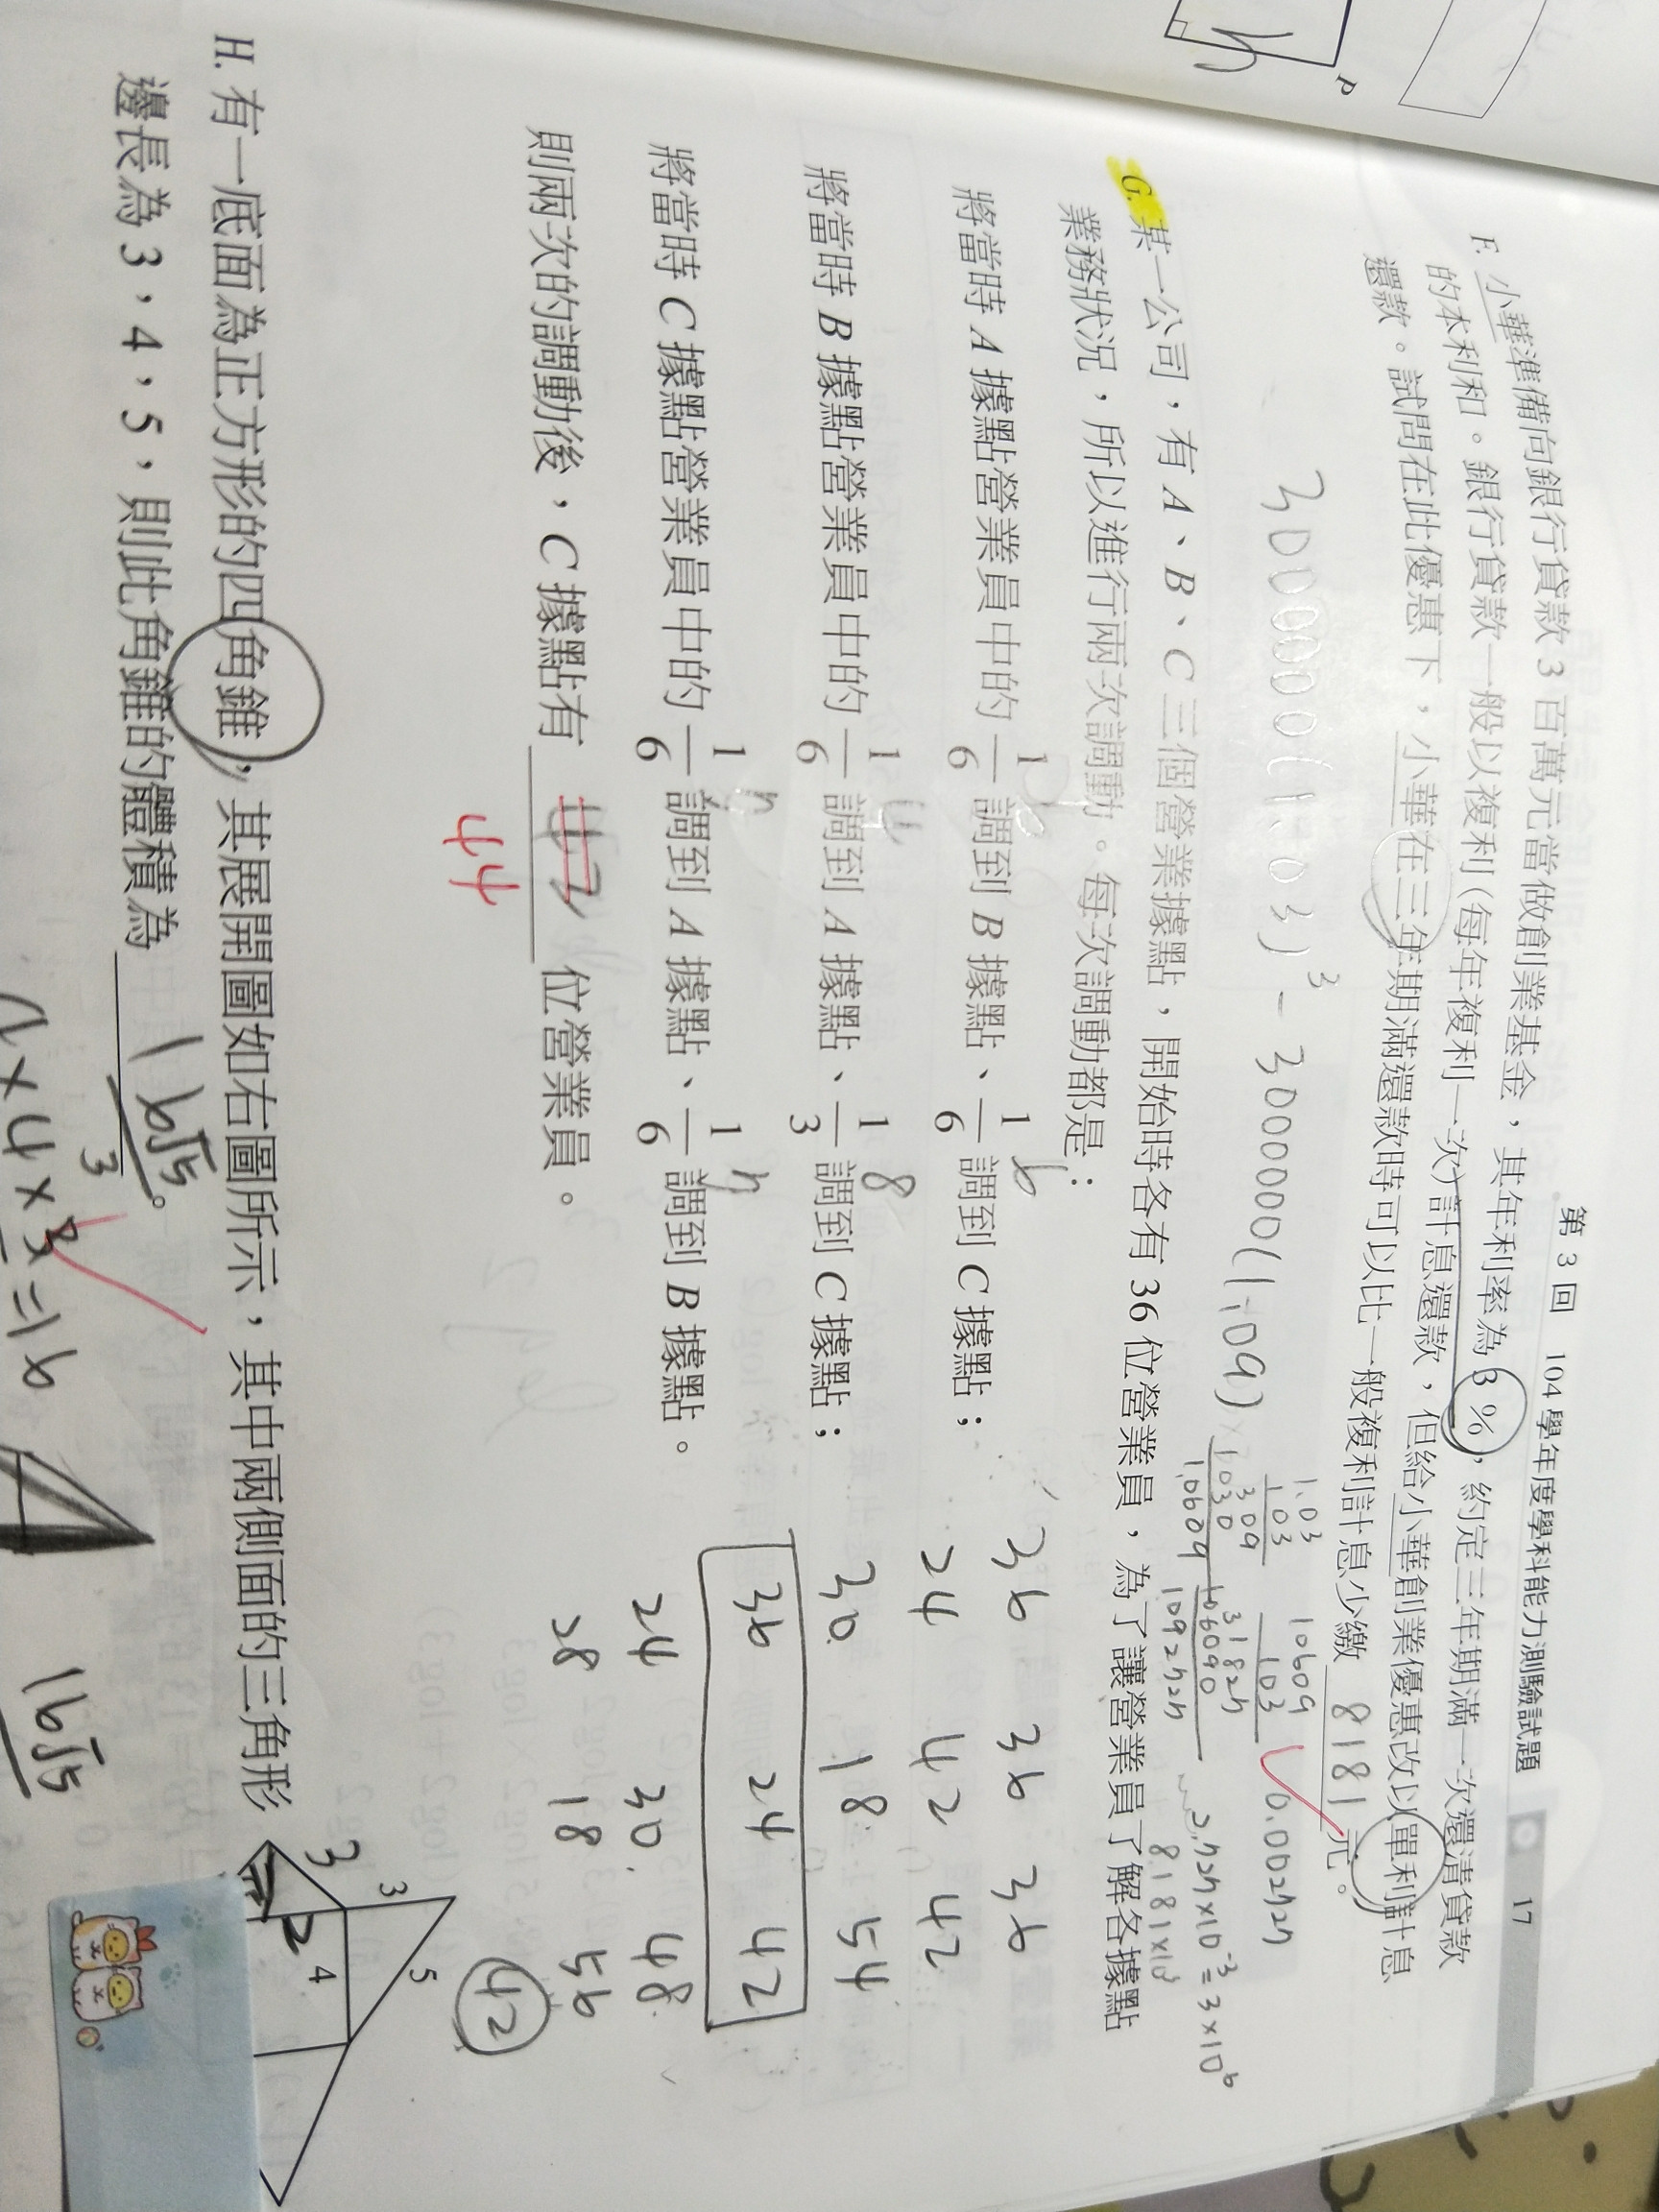 第 3 回　104 學年度學科能力測驗試題　17
F. 小華準備向銀行貸款 3 百萬元當做創業基金，其年利率為 3 %，約定三年期滿一次還清貸款
的本利和。銀行貸款一般以複利(每年複利一次)計息還款，但給小華創業優惠改以單利計息
還款。試問在此優惠下，小華在三年期滿還款時可以比一般複利計息少繳 8181 元。
3000000(1.03)³ - 3000000(1.09)
1.03
1.03
309
1030
1.0609
10609
103
31827
106090
1092727
0.002727
2.727×10⁻³=3×10⁶
8.181×10³
G. 某一公司，有 A、B、C 三個營業據點，開始時各有 36 位營業員，為了讓營業員了解各據點
業務狀況，所以進行兩次調動。每次調動都是：
將當時 A 據點營業員中的 1/6 調到 B 據點、1/6 調到 C 據點；
將當時 B 據點營業員中的 1/6 調到 A 據點、1/3 調到 C 據點；
將當時 C 據點營業員中的 1/6 調到 A 據點、1/6 調到 B 據點。
則兩次的調動後，C 據點有 位營業員。
44
6
8
36 36 36
24 42 42
30 18 54
36 24 42
24 30 48
28 18 56
42
H. 有一底面為正方形的四角錐，其展開圖如右圖所示，其中兩側面的三角形
邊長為 3，4，5，則此角錐的體積為 16√5/3。
3
3
5
4
16√5